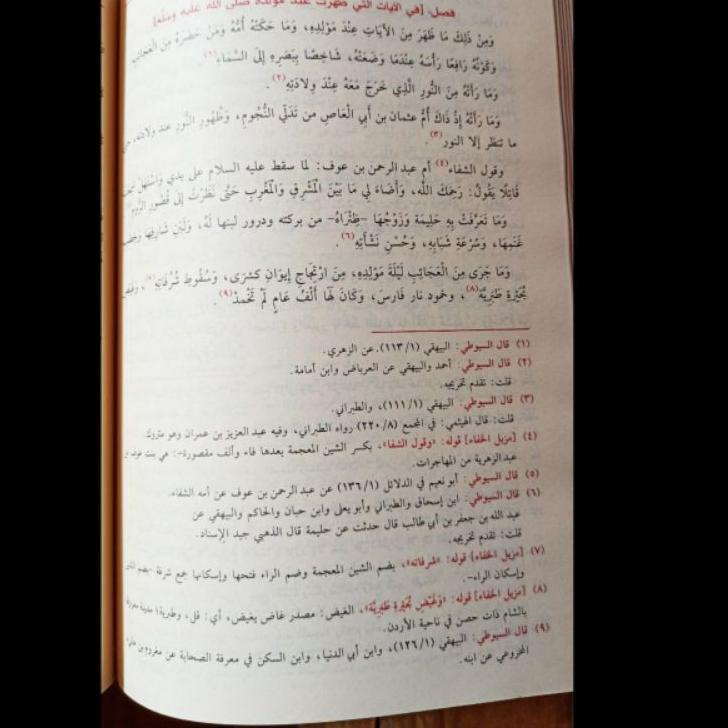 فصل: [في الآيات التي ظهرت عند مولده صلى الله عليه وسلم]
وَمِنْ ذَلِكَ مَا ظَهَرَ مِنَ الآيَاتِ عِنْدَ مَوْلِدِهِ، وَمَا حَكَتْهُ أُمُّهُ وَمَنْ حَضَرَهُ مِنَ الْعَجَائِبِ
وَكَوْنُهُ رَافِعًا رَأْسَهُ عِنْدَمَا وَضَعَتْهُ، شَاخِصًا بِبَصَرِهِ إِلَى السَّمَاءِ(١).
وَمَا رَأَتْهُ مِنَ النُّورِ الَّذِي خَرَجَ مَعَهُ عِنْدَ وِلَادَتِهِ(٢).
وَمَا رَأَتْهُ إِذْ ذَاكَ أُمُّ عثمان بن أبي الْعَاصِ من تَدَلِّي النُّجُومِ، وَظُهُورِ النُّورِ عند ولادته،
ما تنظر إلا النور(٣).
وقول الشفاء(٤) أم عبد الرحمن بن عوف: لما سقط عليه السلام على يدي وَاسْتَهَلَّ سمعت
قَائِلًا يَقُولُ: رَحِمَكَ اللَّه، وَأَضَاءَ لِي مَا بَيْنَ الْمَشْرِقِ وَالْمَغْرِبِ حَتَّى نَظَرْتُ إِلَى قُصُورِ الرُّومِ
وَمَا تَعَرَّفَتْ بِهِ حَلِيمَة وَزَوْجُهَا -ظِئْرَاهُ- من بركته ودرور لبنها لَهُ، وَلَبَنِ شَارِفِهَا وخصب
غَنَمِهَا، وَسُرْعَةِ شَبَابِهِ، وَحُسْنِ نَشْأَتِهِ(٦).
وَمَا جَرَى مِنَ الْعَجَائِبِ لَيْلَةَ مَوْلِدِهِ، مِنِ ارْتِجَاجِ إِيوَانِ كِسْرَى، وَسُقُوطِ شُرُفَاتِهِ(٧)، وَغَيْضِ
بُحَيْرَةِ طَبَرِيَّة(٨)، وخمود نار فَارِسَ، وَكَانَ لَهَا أَلْفُ عَامٍ لَمْ تَخْمَدْ(٩).
(١) قال السيوطي: البيهقي (١١٣/١)، عن الزهري.
(٢) قال السيوطي: أحمد والبيهقي عن العرباض وابن أمامة.
قلت: تقدم تخريجه.
(٣) قال السيوطي: البيهقي (١١١/١)، والطبراني.
قلت: قال الهيثمي: في المجمع (٢٢٠/٨) رواه الطبراني، وفيه عبد العزيز بن عمران وهو متروك.
(٤) [مزيل الخفاء] قوله: «وقول الشفا»، بكسر الشين المعجمة بعدها فاء وألف مقصورة-: هي بنت عوف بن
عبد الزهرية من المهاجرات.
(٥) قال السيوطي: أبو نعيم في الدلائل (١٣٦/١) عن عبد الرحمن بن عوف عن أمه الشفاء.
(٦) قال السيوطي: ابن إسحاق والطبراني وأبو يعلى وابن حبان والحاكم والبيهقي عن
عبد الله بن جعفر بن أبي طالب قال حدثت عن حليمة قال الذهبي جيد الإسناد.
قلت: تقدم تخريجه.
(٧) [مزيل الخفاء] قوله: «شرفاته»، بضم الشين المعجمة وضم الراء فتحها وإسكانها جمع شرفة -بضم الشين
وإسكان الراء-.
(٨) [مزيل الخفاء] قوله: «وَغَيْضِ بُحَيْرَةِ طَبَرِيَّة»، الغيض: مصدر غاض يغيض، أي: قل، وطبرية: مدينة معروفة
بالشام ذات حصن في ناحية الأردن.
(٩) قال السيوطي: البيهقي (١٢٦/١)، وابن أبي الدنيا، وابن السكن في معرفة الصحابة عن مخزوم بن هانئ
المخزومي عن ابنه.